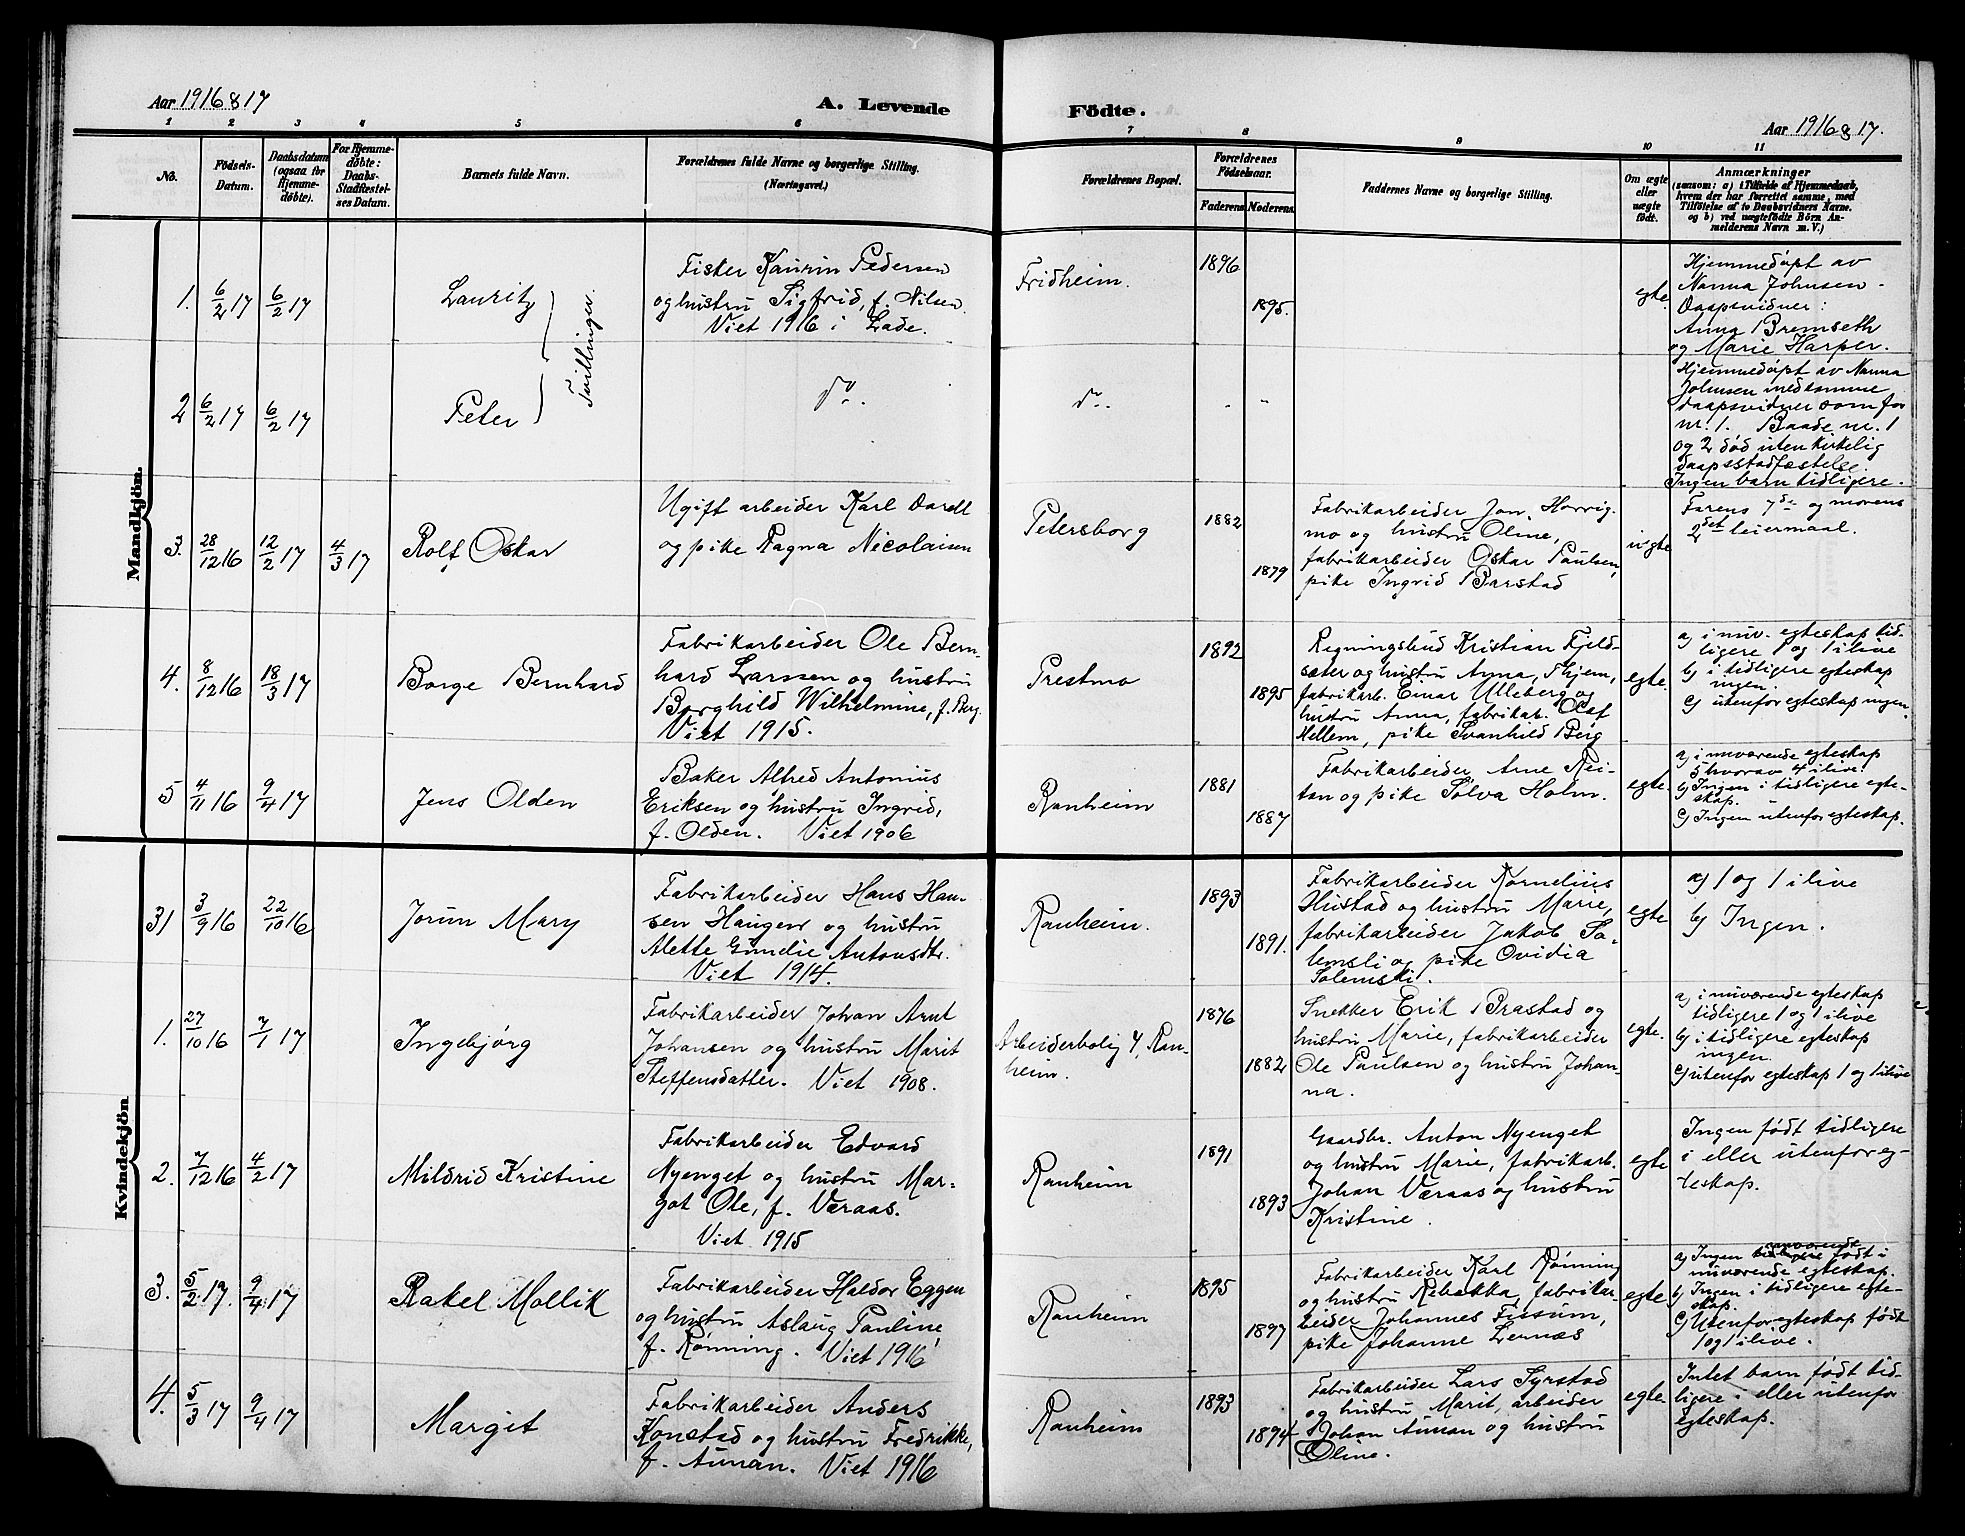 Aar 1916 & 17
A. Levende Födte.
Aar 1916 & 17.
1 2 3 4 5 6 7 8 9 10 11
No.
Födsels-
Datum.
Daabsdatum
(ogsaa for
Hjemme-
døbte).
For Hjemme-
døbte:
Daabs-
Stadfæstel-
ses Datum.
Barnets fulde Navn.
Forældrenes fulde Navne og borgerlige Stilling.
(Næringsvei.)
Forældrenes Bopæl.
Forældrenes
Födselsaar.
Faderens
Moderens
Faddernes Navne og borgerlige Stilling.
Om ægte
eller
uægte
født.
Anmærkninger
(saasom: a) i Tilfælde af Hjemmedaab,
hvem der har forrettet samme, med
Tilföielse af to Daabsvidners Navne,
og b) ved uægtefödte Börn An-
melderens Navn m. V.)
Mandkjön.
1. 6/2 17 6/2 17
Lauritz
Tvillinger.
Fisker Kaurin Pedersen
og hustru Sigfrid, f. Nilsen.
Viet 1916 i Lade.
Fridheim.
1896
1895.
egte.
Hjemmedøpt av
Nanna Johnsen.
Daapsvidner:
Anna Bremseth
og Marie Harper.
2 6/2 17 6/2 17
Peter
do.
do.
Hjemmedøpt av Nanna
Johnsen med samme
daapsvidner som for
nr. 1. Baade nr. 1
og 2 død uten kirkelig
daapsstadfæstelse.
Ingen barn tidligere.
3. 28/12 16 12/2 17 4/3 17
Rolf Oskar
Ugift arbeider Karl Dardt
og pike Ragna Nicolaisen
Petersborg
1882
1879
Fabrikarbeider Jon Horrig-
mo og hustru Oline,
fabrikarbeider Oskar Paulsen,
pike Ingrid Barstad
uegte
Farens 7de og morens
2det leiermaal.
4. 8/12 16 18/3 17
Borge Bernhard
Fabrikarbeider Ole Bern-
hard Larssen og hustru
Borghild Wilhelmine, f. Berg.
Viet 1915.
Prestmo
1892
1895
Regningsbud Kristian Fjeld-
sæter og hustru Anna, Skjem,
fabrikarb. Einar Ulleberg og
hustru Anna, fabrikab. Olaf
Mellem, pike Svanhild Berg
egte.
a) i nuv. egteskap tid-
ligere 1 og 1 ilive
b) i tidligere egteskap
ingen.
c) utenfor egteskap ingen.
5 4/11 16 9/4 17
Jens Olden
Baker Alfred Antonius
Eriksen og hustru Ingrid,
f. Olden. Viet 1906
Ranheim
1881
1887
Fabrikarbeider Arne Rei-
tan og pike Solva Holm.
egte.
a) i nuværende egteskap
5 hvorav 4 ilive.
b) Ingen i tidligere egte-
skap.
c) Ingen utenfor egteskap.
Kvindekjön
31 3/9 16 22/10 16
Jorun Mary
Fabrikarbeider Hans Han-
sen Haugen og hustru
Alette Emelie Antonsdtr.
Viet 1914.
Ranheim.
1893
1891.
Fabrikarbeider Kornelius
Hustad og hustru Marie,
fabrikarbeider Jakob So-
lemsli og pike Ovidia
Solemsli.
egte
a) 1 og 1 ilive
b) Ingen.
1. 27/10 16 7/1 17
Ingebjørg
Fabrikarbeider Johan Arnt
Johansen og hustru Marit
Steffensdatter. Viet 1908.
Arbeiderbolig 4, Ran-
heim.
1876
1882
Snekker Erik Brastad og
hustru Marie, fabrikarbeider
Ole Paulsen og hustru Johan-
na.
egte.
a) i nuværende egteskap
tidligere 1 og 1 ilive
b) i tidligere egteskap
ingen.
c) utenfor egteskap 1 og 1 ilive
2. 7/12 16 4/2 17
Mildrid Kristine
Fabrikarbeider Edvard
Nyenget og hustru Mar-
got Ole, f. Væraas.
Viet 1915
Ranheim
1891
1893
Gaardbr. Anton Nyenget
og hustru Marie, fabrikarb.
Johan Væraas og hustru
Kristine.
egte
Ingen født tidligere
i eller utenfor eg-
teskap.
3. 5/2 17. 9/4 17
Rakel Mollik
Fabrikarbeider Haldor Eggen
og hustru Aslaug Pauline,
f. Rønning. Viet 1916
Ranheim
1895
1897
Fabrikarbeider Karl Rønning
og hustru Rebekka, fabrikar-
beider Johannes Fissum,
pike Johanne Lernæs
egte
a) Ingen tidligere født i
nuværende egteskap.
b) Ingen i tidligere egte-
skap.
c) Utenfor egteskap født
1 og 1 ilive.
4. 5/3 17 9/4 17
Margit
Fabrikarbeider Anders
Konstad og hustru Fredrikke,
f. Aunan. Viet 1916
Ranheim
1893
1894
Fabrikarbeider Lars Syrstad
og hustru Marit, arbeider
Johan Aunan og hustru
Oline.
egte.
Intet barn født tid-
ligere i eller utenfor
egteskap.